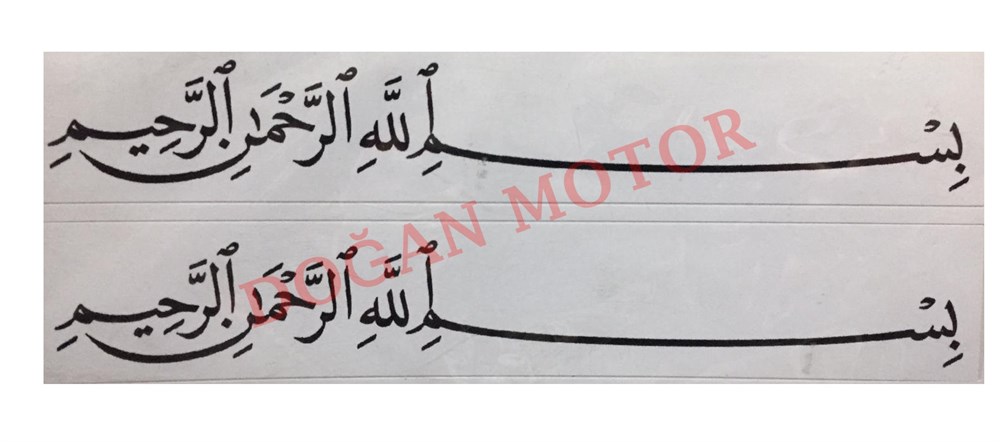 بِسْمِ ٱللَّهِ ٱلرَّحْمَٰنِ ٱلرَّحِيمِ
DOĞAN MOTOR
بِسْمِ ٱللَّهِ ٱلرَّحْمَٰنِ ٱلرَّحِيمِ